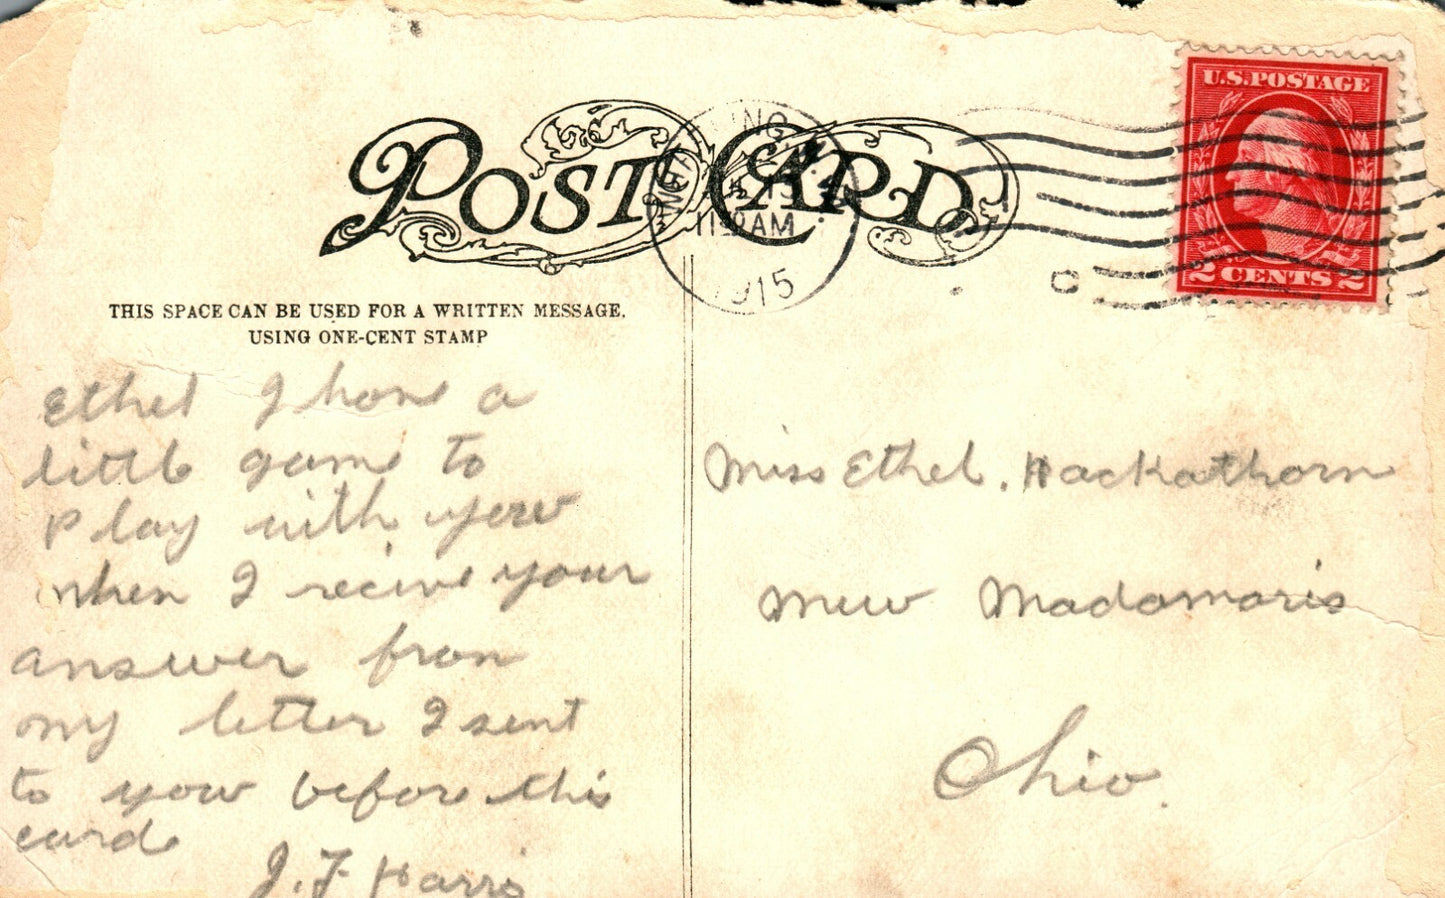 POST CARD
U.S. POSTAGE
2 CENTS 2
11 AM
1915
THIS SPACE CAN BE USED FOR A WRITTEN MESSAGE.
USING ONE-CENT STAMP
Ethel I have a
little game to
play with yow
when I recive your
answer from
my letter I sent
to yow before this
card
J. F Harris
Miss Ethel. Hackathorn
New Madamaris
Ohio.